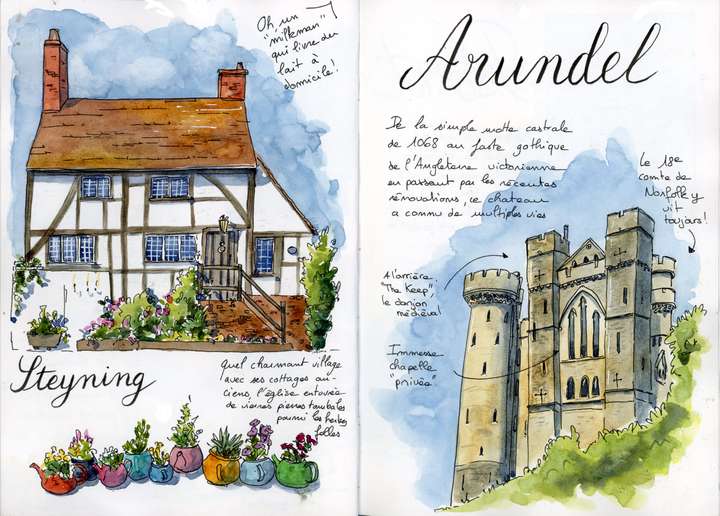 Oh, un
"milkman"
qui livre du
lait à
domicile!
Steyning
quel charmant village
avec ses cottages an-
ciens, l'église entourée
de vieilles pierres tombales
parmi les herbes
folles
Arundel
De la simple motte castrale
de 1068 au faste gothique
de l'Angleterre victorienne
en passant par les récentes
rénovations, ce chateau
a connu de multiples vies
Le 18e
comte de
Norfolk y
vit
toujours!
A l'arrière:
"The Keep",
le donjon
médiéval
Immense
chapelle
"privée"